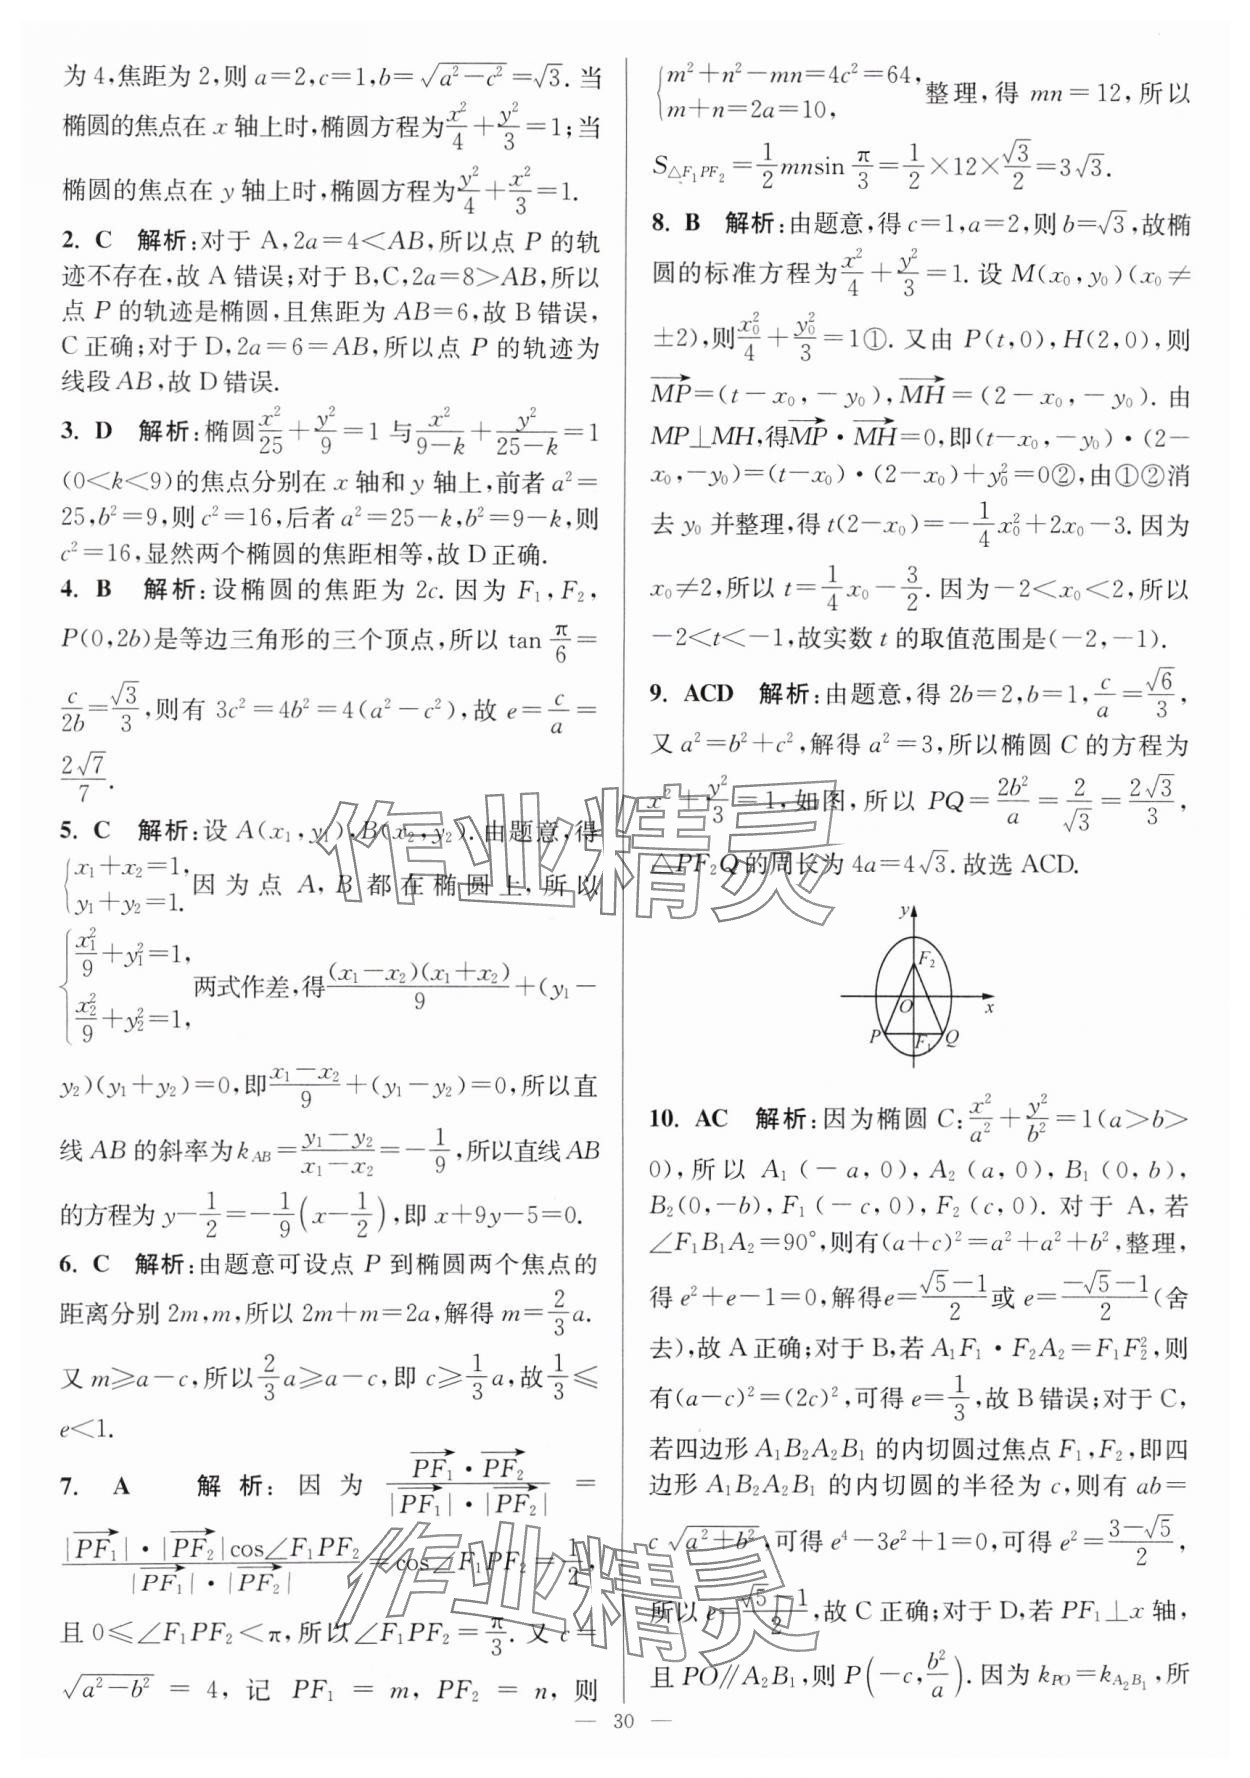 为 4,焦距为 2,则 a=2,c=1,b=√(a²-c²)=√3. 当
椭圆的焦点在 x 轴上时,椭圆方程为x²/4+y²/3=1;当
椭圆的焦点在 y 轴上时,椭圆方程为y²/4+x²/3=1.
2. C 解析:对于 A,2a=4<AB,所以点 P 的轨
迹不存在,故 A 错误;对于 B,C,2a=8>AB,所以
点 P 的轨迹是椭圆,且焦距为 AB=6,故 B 错误,
C 正确;对于 D,2a=6=AB,所以点 P 的轨迹为
线段 AB,故 D 错误.
3. D 解析:椭圆x²/25+y²/9=1 与x²/(9-k)+y²/(25-k)=1
(0<k<9)的焦点分别在 x 轴和 y 轴上,前者 a²=
25,b²=9,则 c²=16,后者 a²=25-k,b²=9-k,则
c²=16,显然两个椭圆的焦距相等,故 D 正确.
4. B 解析:设椭圆的焦距为 2c. 因为 F₁,F₂,
P(0,2b)是等边三角形的三个顶点,所以 tan π/6=
c/2b=√3/3,则有 3c²=4b²=4(a²-c²),故 e=c/a=
2√7/7.
5. C 解析:设 A(x₁,y₁),B(x₂,y₂). 由题意,得
{x₁+x₂=1, y₁+y₂=1. 因为点 A,B 都在椭圆上,所以
{x₁²/9+y₁²=1, x₂²/9+y₂²=1, 两式作差,得(x₁-x₂)(x₁+x₂)/9+(y₁-
y₂)(y₁+y₂)=0,即(x₁-x₂)/9+(y₁-y₂)=0,所以直
线 AB 的斜率为 k_AB=(y₁-y₂)/(x₁-x₂)=-1/9,所以直线 AB
的方程为 y-1/2=-1/9(x-1/2),即 x+9y-5=0.
6. C 解析:由题意可设点 P 到椭圆两个焦点的
距离分别 2m,m,所以 2m+m=2a,解得 m=2/3a.
又 m≥a-c,所以2/3a≥a-c,即 c≥1/3a,故1/3≤
e<1.
7. A 解析:因为 (PF₁→·PF₂→)/(|PF₁→|·|PF₂→|) =
|PF₁→|·|PF₂→|cos∠F₁PF₂/(|PF₁→|·|PF₂→|)=cos∠F₁PF₂=1/2,
且 0≤∠F₁PF₂<π,所以∠F₁PF₂=π/3. 又 c=
√(a²-b²) = 4, 记 PF₁ = m, PF₂ = n, 则
{m²+n²-mn=4c²=64, m+n=2a=10, 整理,得 mn=12,所以
S△F₁PF₂=1/2 mnsin π/3=1/2×12×√3/2=3√3.
8. B 解析:由题意,得 c=1,a=2,则 b=√3,故椭
圆的标准方程为x²/4+y²/3=1. 设 M(x₀,y₀)(x₀≠
±2),则x₀²/4+y₀²/3=1①. 又由 P(t,0),H(2,0),则
MP→=(t-x₀,-y₀),MH→=(2-x₀,-y₀). 由
MP⊥MH,得MP→·MH→=0,即(t-x₀,-y₀)·(2-
x₀,-y₀)=(t-x₀)·(2-x₀)+y₀²=0②,由①②消
去 y₀ 并整理,得 t(2-x₀)=-1/4x₀²+2x₀-3. 因为
x₀≠2,所以 t=1/4x₀-3/2. 因为-2<x₀<2,所以
-2<t<-1,故实数 t 的取值范围是(-2,-1).
9. ACD 解析:由题意,得 2b=2,b=1,c/a=√6/3,
又 a²=b²+c²,解得 a²=3,所以椭圆 C 的方程为
x²+y²/3=1,如图,所以 PQ=2b²/a=2/√3=2√3/3,
△PF₂Q 的周长为 4a=4√3. 故选 ACD.
y
F₂
O
x
P
F₁
Q
10. AC 解析:因为椭圆 C:x²/a²+y²/b²=1(a>b>
0),所以 A₁(-a,0),A₂(a,0),B₁(0,b),
B₂(0,-b),F₁(-c,0),F₂(c,0). 对于 A,若
∠F₁B₁A₂=90°,则有(a+c)²=a²+a²+b²,整理,
得 e²+e-1=0,解得e=(√5-1)/2或 e=(-√5-1)/2(舍
去),故 A 正确;对于 B,若 A₁F₁·F₂A₂=F₁F₂²,则
有(a-c)²=(2c)²,可得 e=1/3,故 B 错误;对于 C,
若四边形 A₁B₂A₂B₁ 的内切圆过焦点 F₁,F₂,即四
边形 A₁B₂A₂B₁ 的内切圆的半径为 c,则有 ab=
c√(a²+b²),可得 e⁴-3e²+1=0,可得 e²=(3-√5)/2,
所以 e=(√5-1)/2,故 C 正确;对于 D,若 PF₁⊥x 轴,
且 PO∥A₂B₁,则 P(-c,b²/a). 因为 k_PO=k_A₂B₁,所
— 30 —
作业精灵
作业精灵